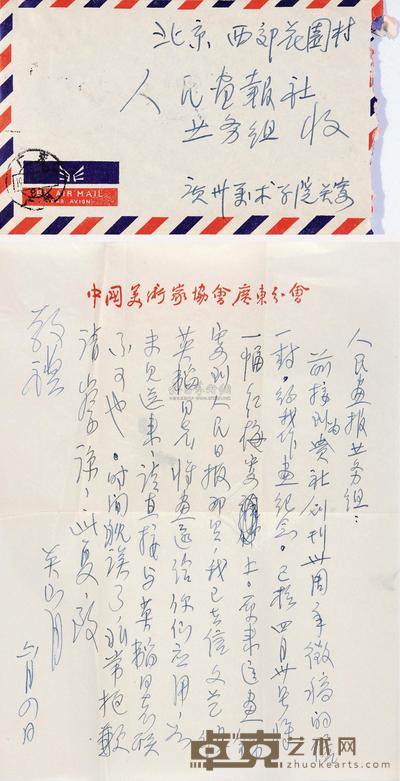 北京西郊花園村
人民画報社
业务组 收
广州美术学院关寄
AIR MAIL
PAR AVION
中国美術家協會廣東分會
人民画报业务组：
前接到为貴社创刊卅周年徵稿的
一封，约我作画纪念。已于四月卅号将
一幅红梅寄 上。原来这画
寄到人民日报那里，我已去信文艺
英韬同志将画送给你们应用。
未见送来，请直接与英韬同志联
系可也。时间耽误了，非常抱歉
請鉴諒，此复，致
敬禮
关山月
六月四日
卓克艺术网
www.zhuokearts.com